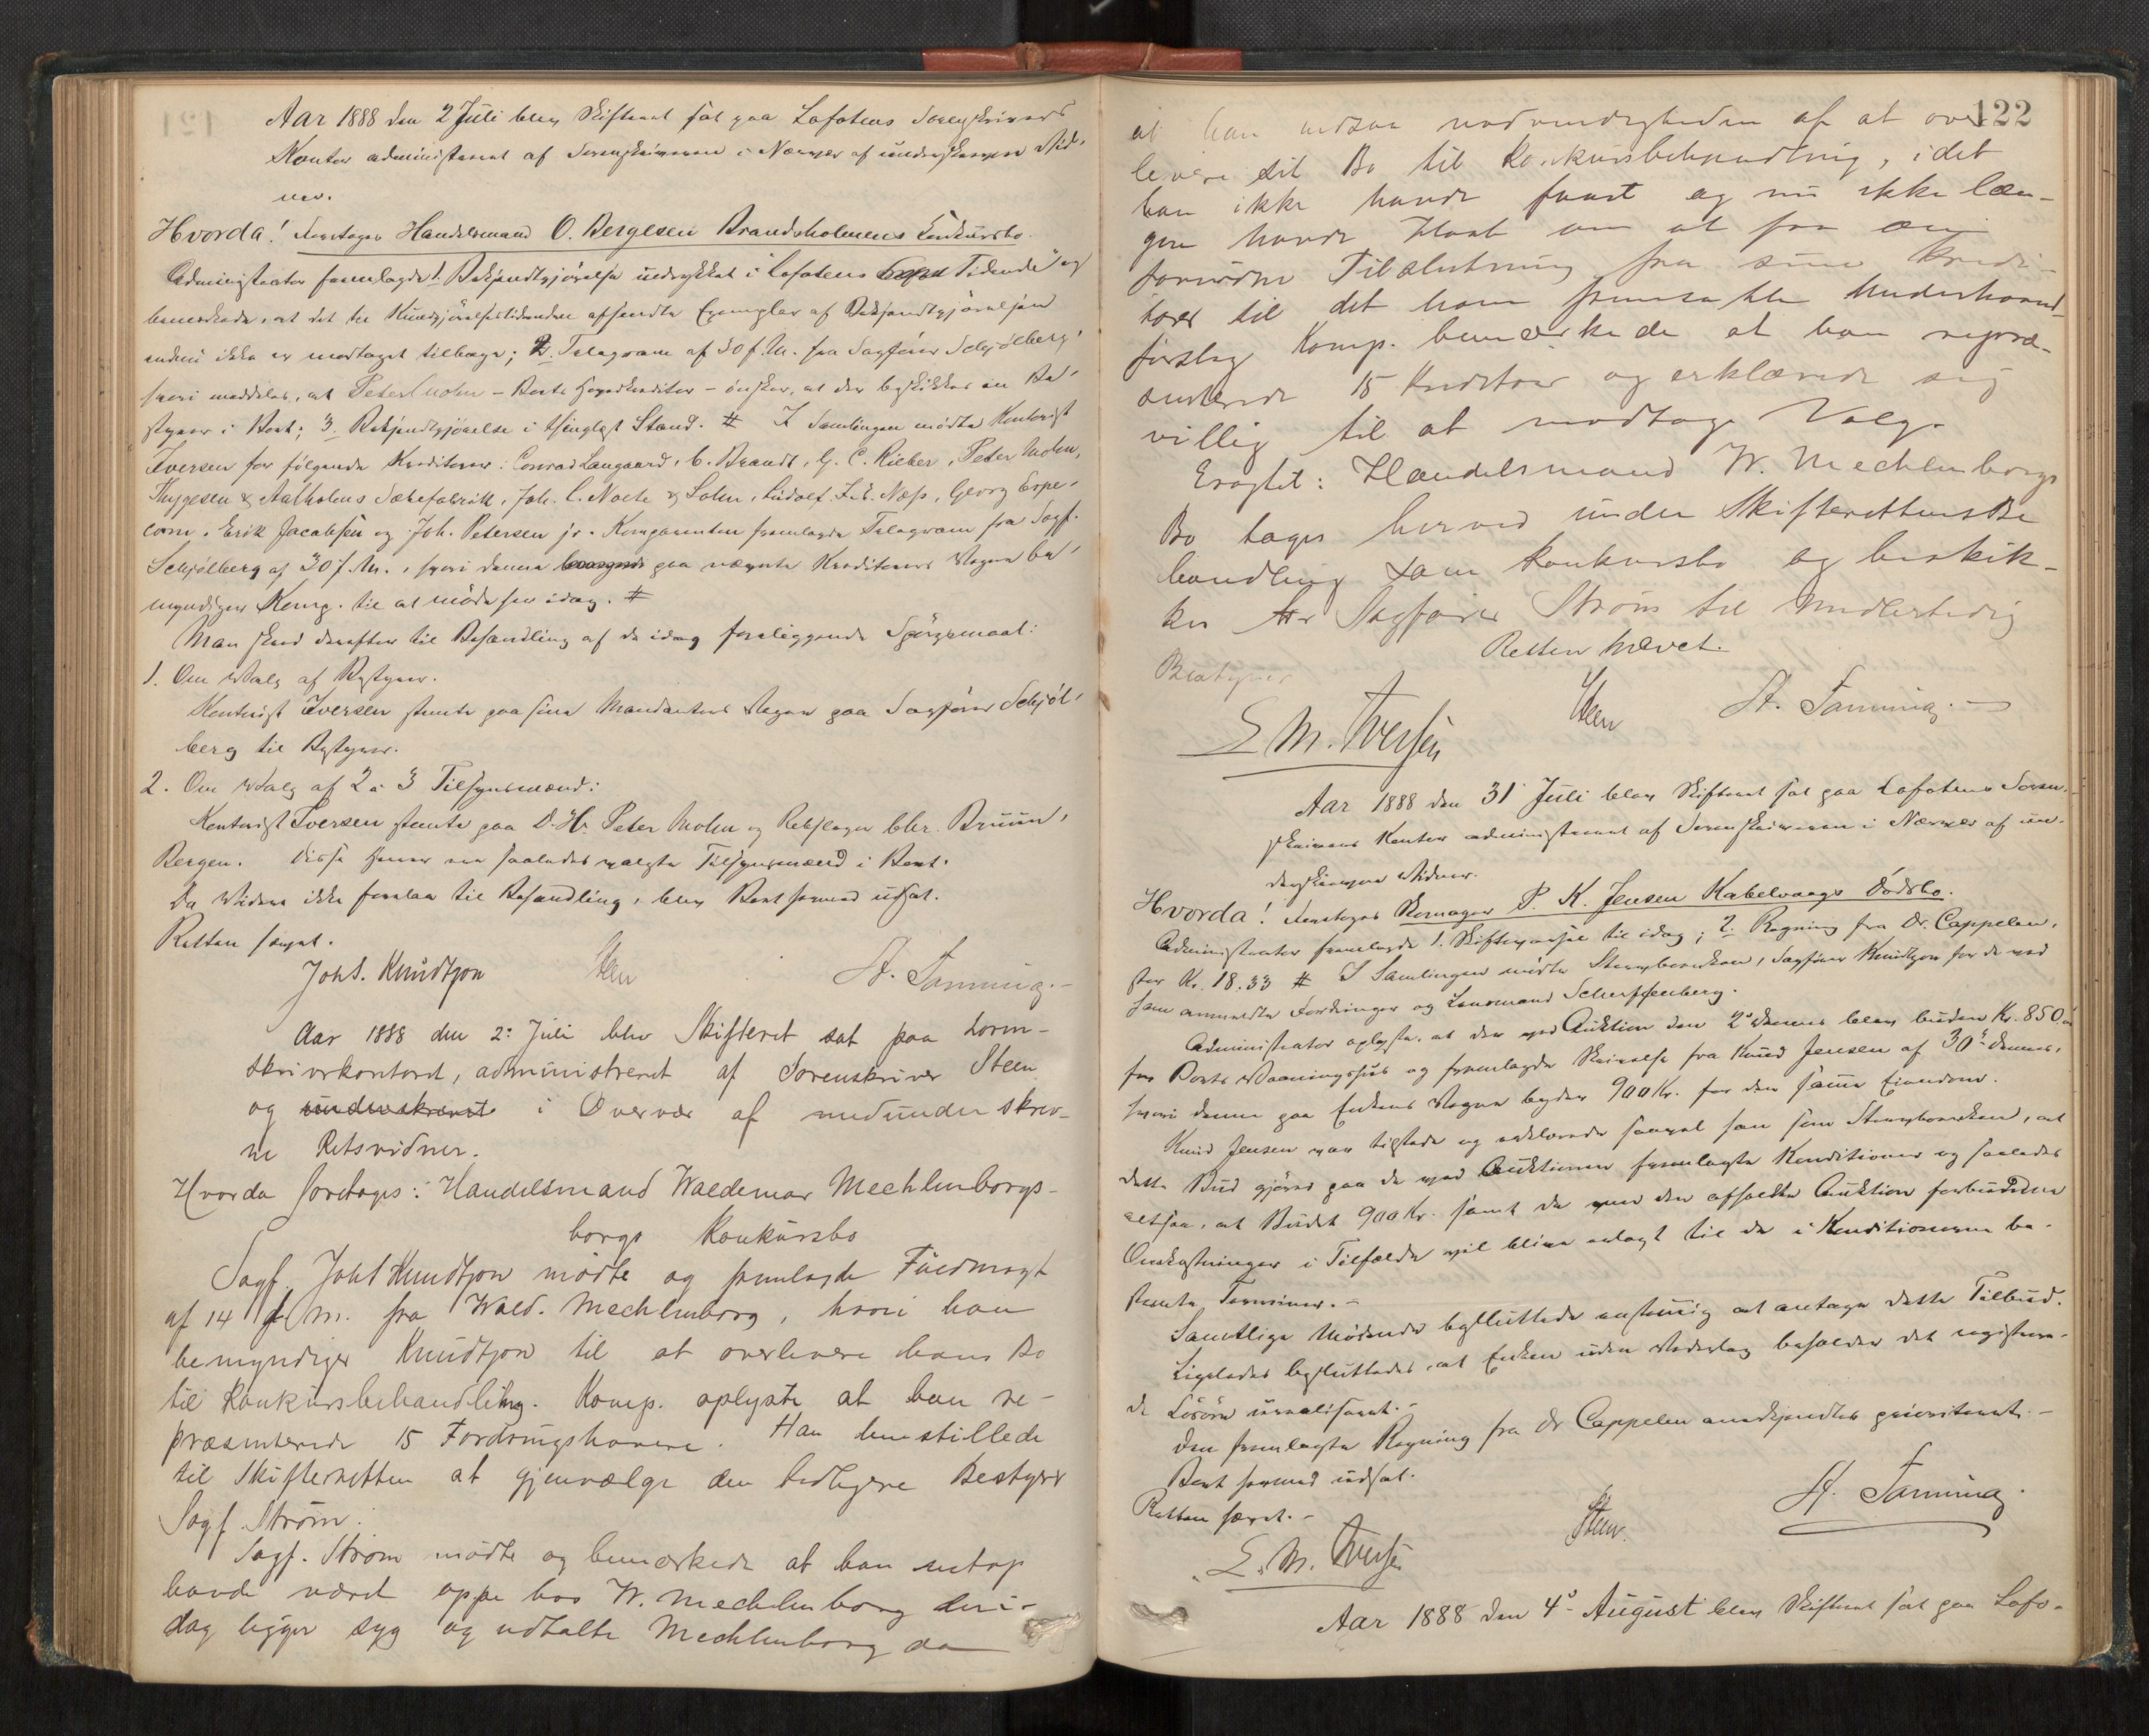 Aar 1888 den 2 Juli blev Skifteret sat paa Lofotens Sorenskriver
Kontor administreret af Sorenskriveren i Nærvær af underskrevne Vid-
ner.
Hvorda! Foretoges Handelsmand O. Bergesen Brandsholmens Konkursbo.
Administrator fremlagde 1. Bekjendtgjörelse indrykket i "Lofotens Tidende" og
bemærkede, at det til Kundgjörelsestidenden afsendte Exemplar af Bekjendtgjörelsen
endnu ikke er modtaget tilbage; 2. Telegram af 30 f. M. fra Sagförer Schjölberg
hvori meddeles, at Peter Mohn - Boets Hovedkreditor - önsker, at der beskikkes en Be-
styrer i Boet; 3. Bekjendtgjörelse i thinglæst Stand. # I Samlingen mödte Kontorist
Iversen for følgende Kreditorer: Conrad Langaard, C. Brandt, G. C. Rieber, Peter Mohn,
Thygesen & Aalholms Sæbefabrik, Joh. C. Nolte & Sohn, Ludolf Næss, Georg Espe-
corn, Erik Jacobsen og Joh. Petersen jr. Komparenten fremlagde Telegram fra Sagf.
Schjölberg af 30 f. M., hvori denne paa nævnte Kreditorers Vegne be-
myndiger Komp. til at möde her idag. #
Man skred derefter til Behandling af de idag foreliggende Spörgsmaal:
1. Om Valg af Bestyrer.
Kontorist Iversen stemte paa sine Mandanters Vegne paa Sagförer Schjöl-
berg til Bestyrer.
2. Om Valg af 2 a 3 Tilsynsmænd:
Kontorist Iversen stemte paa D. Hr. Peter Mohn og Rebslager Chr. Bruun,
Bergen. Disse Herrer ere saaledes valgte Tilsynsmænd i Boet.
Da Videre ikke forelaa til Behandling, blev Boet hermed udsat.
Retten hævet.
Johs. Knudtzon Steen A. Tanning.
Aar 1888 den 2: Juli blev Skifteret sat paa Soren-
skriverkontoret, administreret af Sorenskriver Steen
og underskrevet i Overvær af nedunder skrev-
ne Retsvidner.
Hvorda foretoges: Handelsmand Waldemar Mechlenborgs-
borgs Konkursbo
Sagf. Johs Knudtzon mödte og fremlagde Fuldmagt
af 14 f. M. fra Wald. Mechlenborg, hvori han
bemyndiger Knudtzon til at overlevere hans Bo
til Konkursbehandling. Komp. oplyste at han re-
præsenterede 15 Fordringshavere. Han henstillede
til Skifteretten at gjenvælge den tidligere Bestyrer
Sagf. Strøm.
Sagf. Strøm mødte og bemærkede at han netop
havde været oppe hos W. Mechlenborg der i-
dag ligger syg og udtalte Mechlenborg da
122
at han indsaa nødvendigheden af at over
levere sit Bo til Konkursbehandling, idet
han ikke havde faaet og nu ikke læn-
gere havde Haab om at faa en
fornöden Tilslutning fra sine Kredi-
torer til det ham fremsatte Underhaand
forslag Komp. bemærkede at han repræ-
senterede 15 Kreditorer og erklærede sig
villig til at modtage Valg.
Eragtet: Handelsmand W. Mechlenborgs
Bo tages herved under Skifterettens Be
handling som Konkursbo og beskik-
kes Hr Sagförer Strøm til midlertidig
Bestyrer Retten hævet.
E M. Iversen Steen A. Tanning.
Aar 1888 den 31 Juli blev Skifteret sat paa Lofotens Soren-
skrivers Kontor administreret af Sorenskriveren i Nærvær af un-
derskrevne Vidner.
Hvorda! Foretoges Skomager P. K. Jensen Kabelvaags Dödsbo.
Administrator fremlagde 1. Skiftevarsel til idag; 2. Regning fra Dr. Cappelen,
stor Kr. 18.33 # I Samlingen mödte Stervboenken, Sagförer Knudtzon for de ved
ham anmeldte Fordringer og Lensmand Scherffenberg.
Administrator oplyste, at der ved Auktion den 2' dennes blev buden Kr. 850.
for Boets Vaaningshus og fremlagde Skrivelse fra Knud Jensen af 30' dennes,
hvori denne paa Enkens Vegne byder 900 Kr. for den samme Eiendom.
Knud Jensen var tilstede og erklærede saavel han som Stervboenken, at
dette Bud gjöres paa de ved Auktionen fremlagte Konditioner og saaledes
altsaa, at Budet 900 Kr. samt de med den afholdte Auktion forbundne
Omkostninger i Tilfælde vil blive erlagt til de i Konditionerne be-
stemte Terminer. -
Samtlige Mödende besluttede enstemmig at antage dette Tilbud.
Ligeledes besluttedes, at Enken uden Vederlag beholder det registrere-
de Lösöre urealiseret. -
Den fremlagte Regning fra Dr Cappelen anerkjendtes prioriteret. -
Boet hermed udsat.
Retten hævet. -
E. M. Iversen Steen. A. Tanning.
Aar 1888 den 4' August blev Skifteret sat paa Lofo-